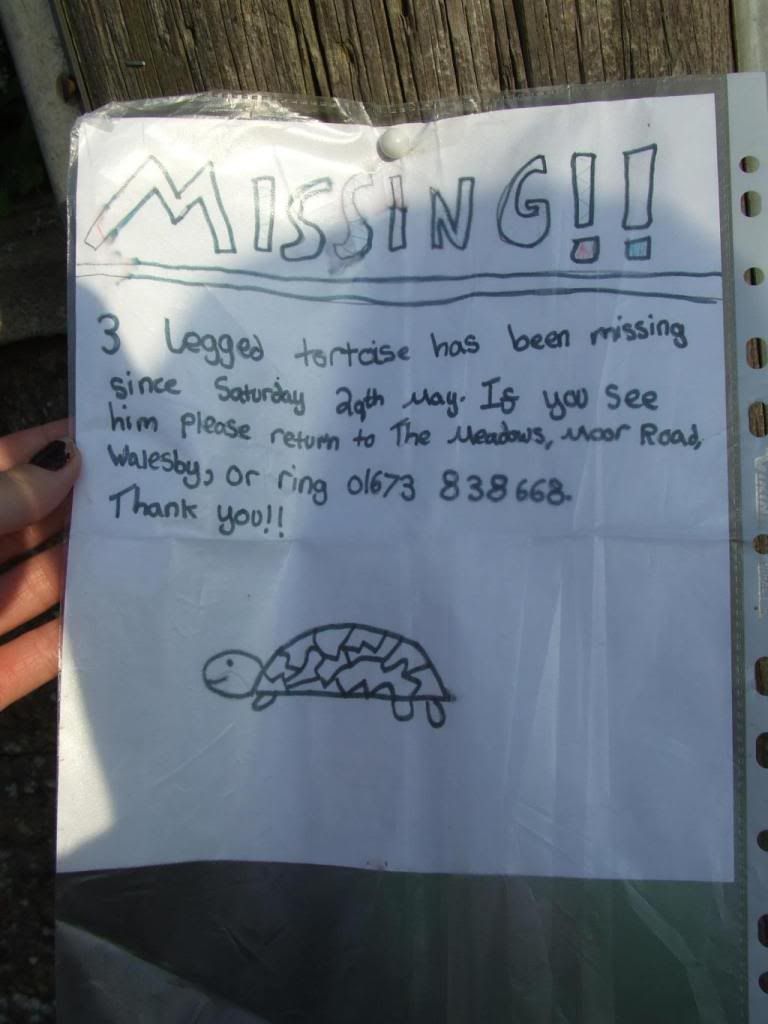 MISSING!!
3 Legged tortoise has been missing
since Saturday 29th May. If you see
him please return to The Meadows, Moor Road,
Walesby, or ring 01673 838668.
Thank you!!